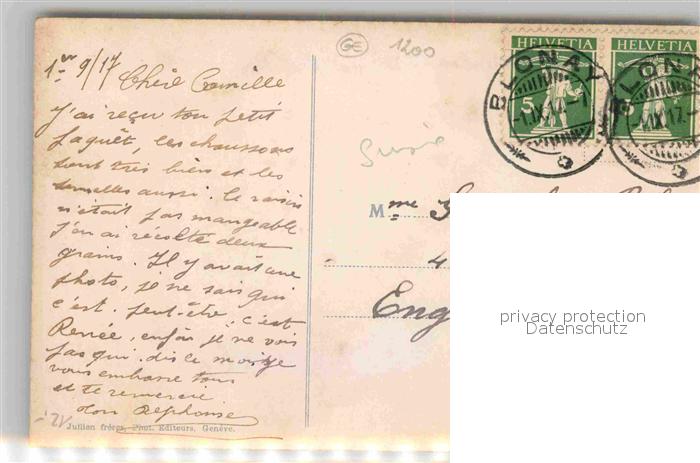 1er 9/17
Chère Camille
J'ai reçu ton petit
paquêt, les chaussons
sont très biens et les
semelles aussi. Le raisin
n'était pas mangeable
j'en ai récolté deux
grains. Il y avait une
photo, je ne sais qui
c'est. peut-être, c'est
Renée, enfin je ne vois
pas qui. dis le moi je
vous embrasse tous
et te remercie
Ton Alphonse
Jullien frères, Phot. Editeurs, Genève.
GE
1200
Suisse
HELVETIA
HELVETIA
5
BLONAY
BLONAY
Mme
4
Eng
privacy protection
Datenschutz